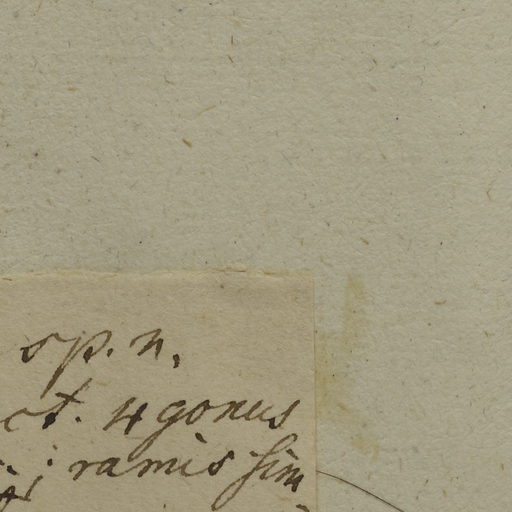 sp. n.
ct. 4gonus
; ramis sim